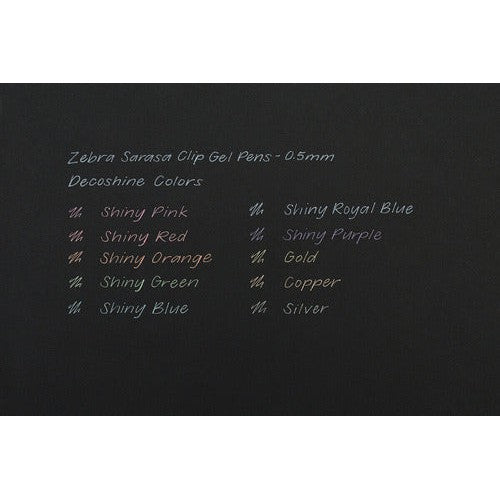 Zebra Sarasa Clip Gel Pens - 0.5mm
Decoshine Colors
Shiny Pink
Shiny Red
Shiny Orange
Shiny Green
Shiny Blue
Shiny Royal Blue
Shiny Purple
Gold
Copper
Silver